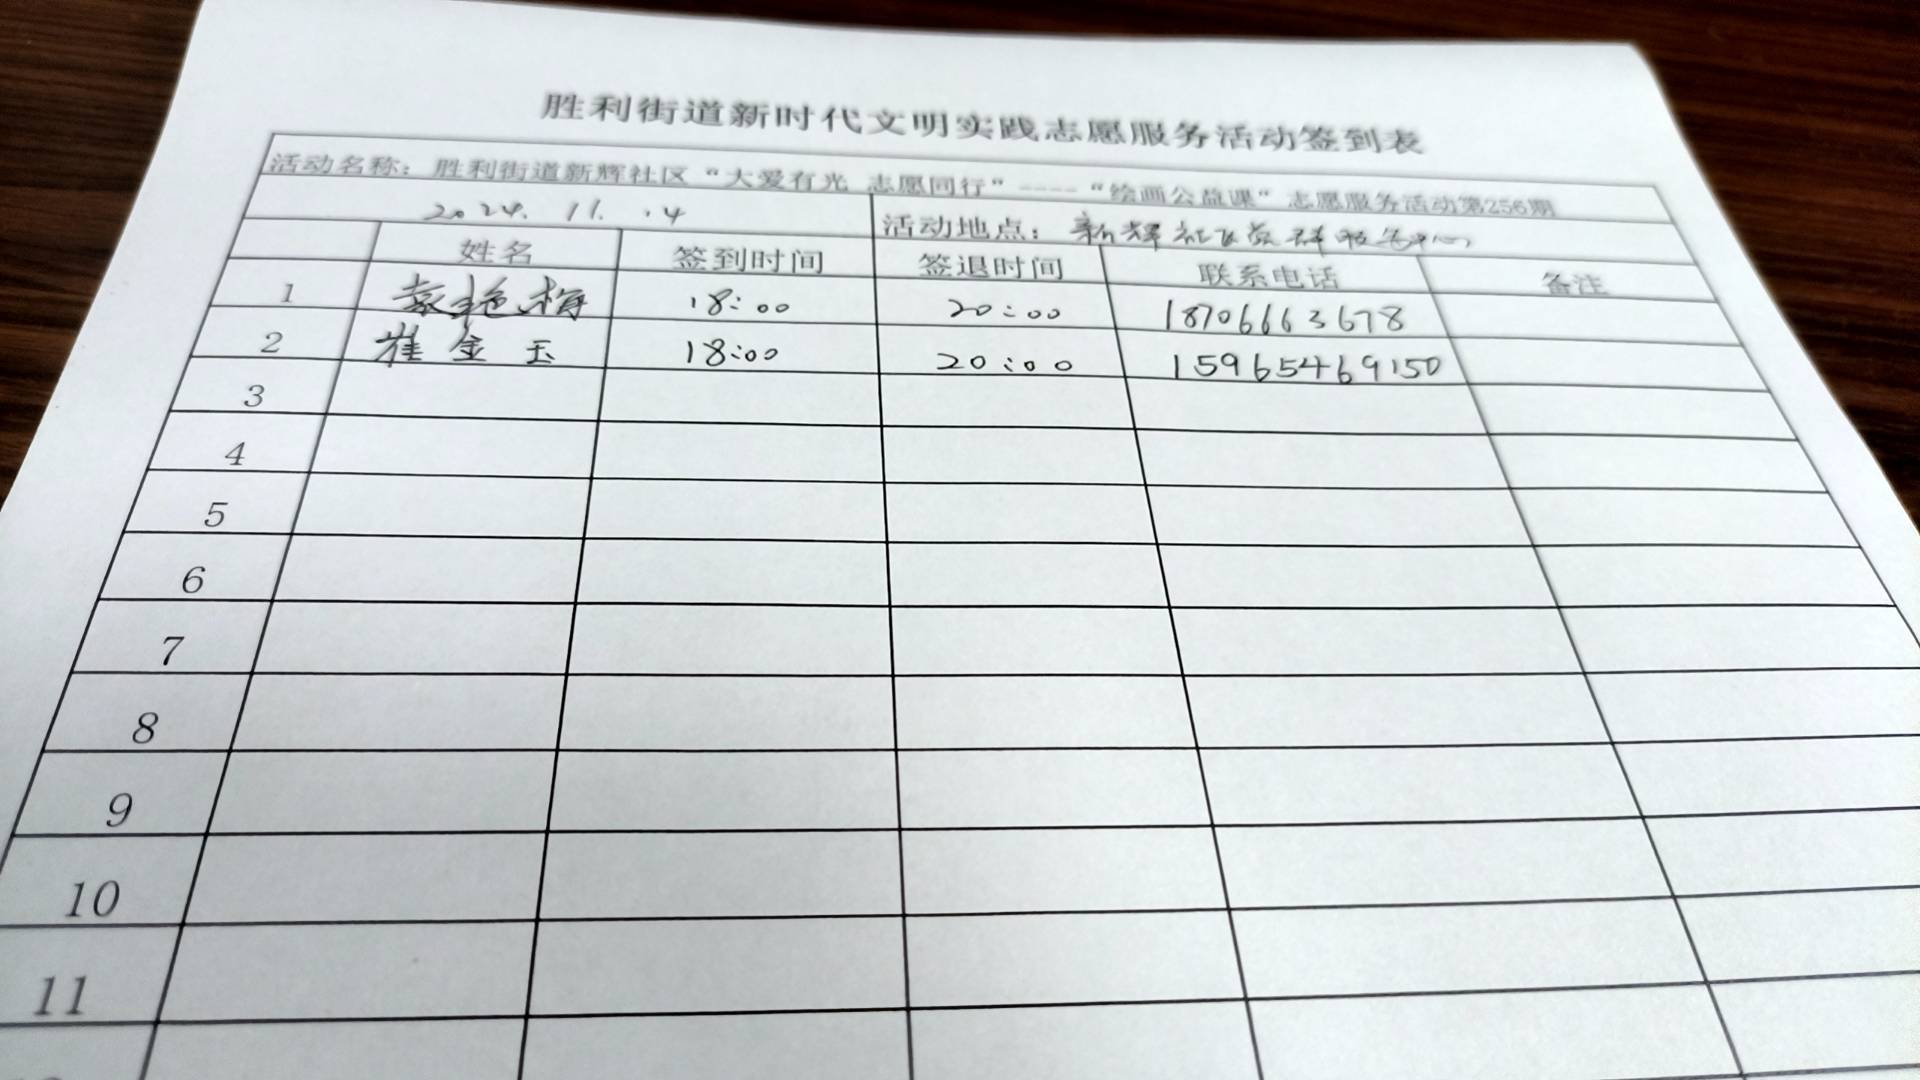 胜利街道新时代文明实践志愿服务活动签到表
活动名称：胜利街道新辉社区“大爱有光 志愿同行”----“绘画公益课”志愿服务活动第256期
2024. 11. 14 活动地点：新辉社区党群服务中心
姓名 签到时间 签退时间 联系电话 备注
1 袁艳梅 18:00 20:00 18706663678
2 崔金玉 18:00 20:00 15965469150
3
4
5
6
7
8
9
10
11